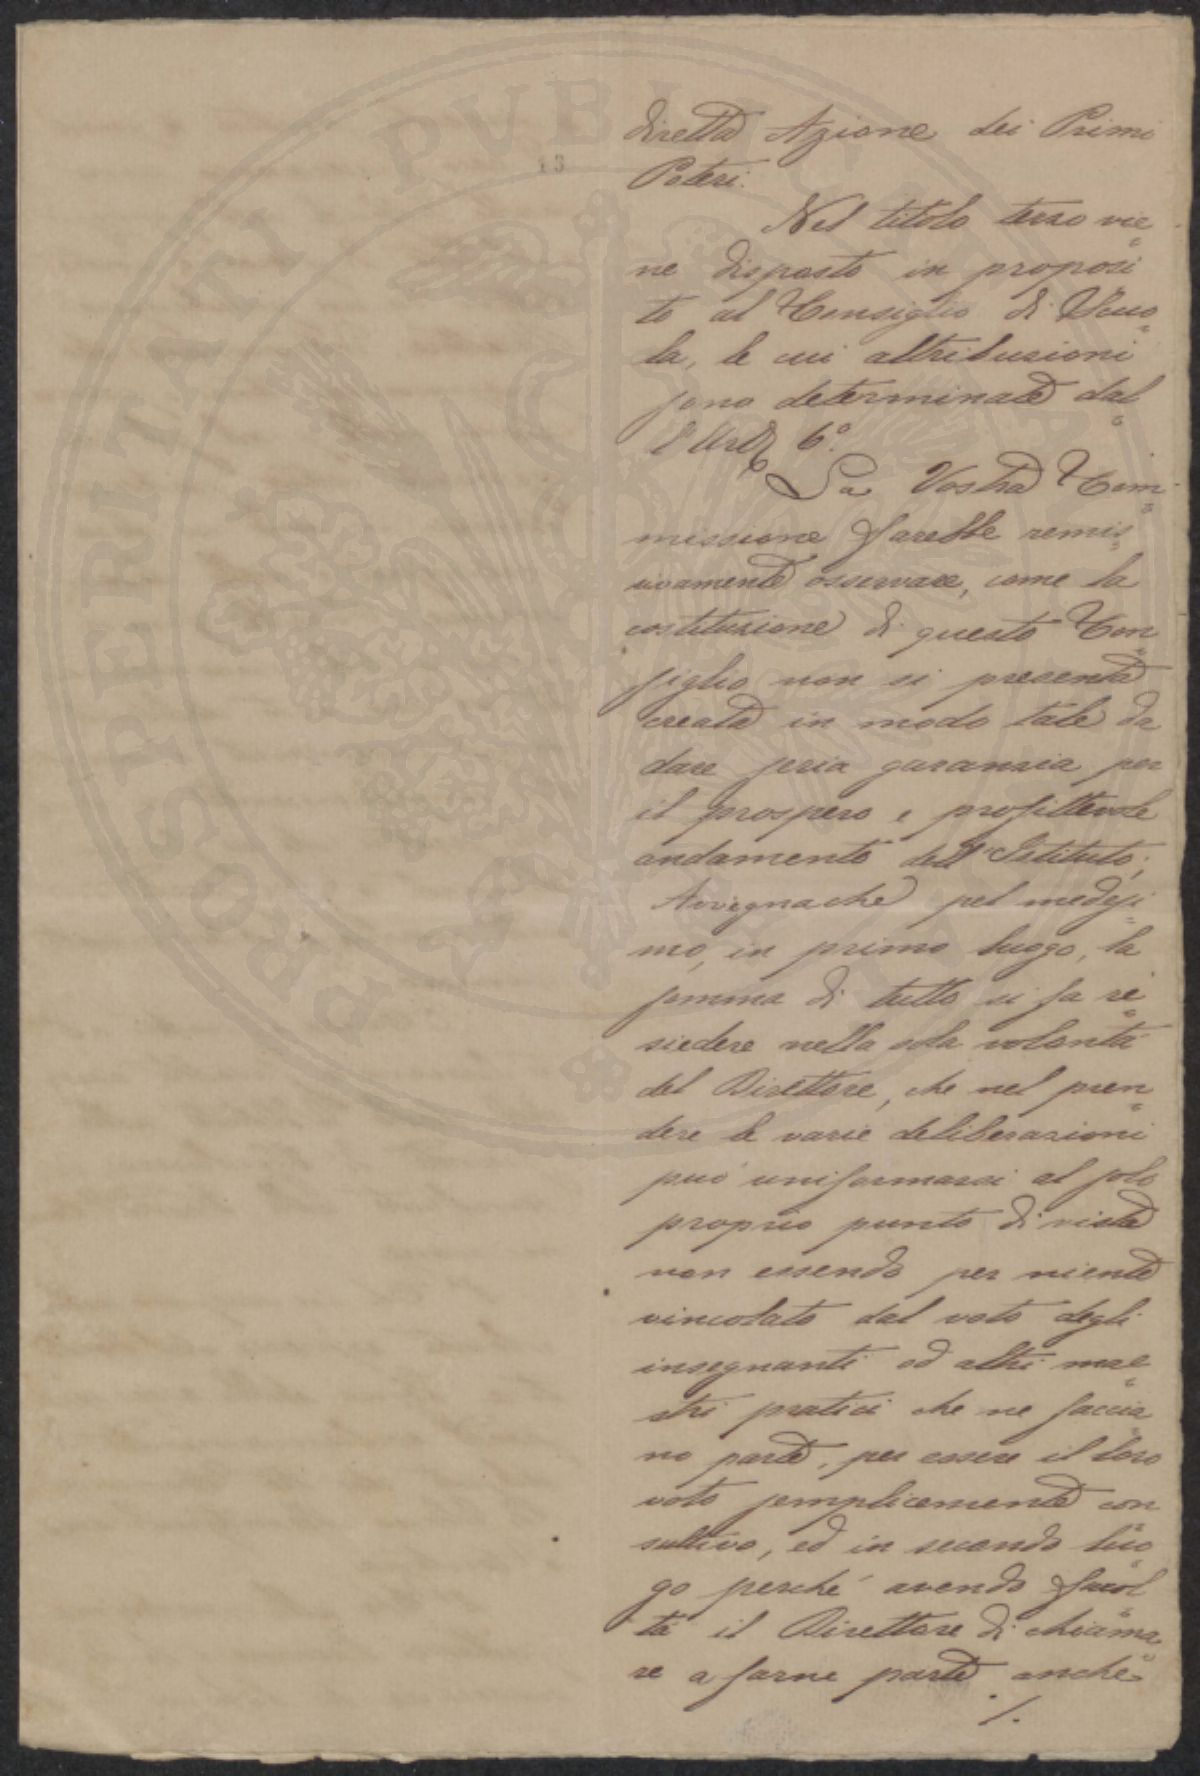 PROSPERITATI PVBLICAE
13
diretta Azione dei Primi
Poteri.
Nel titolo terzo vie
ne disposto in proposi
to al Consiglio di Scuo
la, le cui attribuzioni
sono determinate dal
l'Art. 6.°
La Vostra Com
missione farebbe remis
sivamente osservare, come la
costituzione di questo Con
siglio non si presenta
creata in modo tale da
dare seria garanzia per
il prospero e profittevole
andamento dell'Istituto;
Avvegnachè pel medesi
mo, in primo luogo, la
somma di tutto si fa ri
siedere nella sola volontà
del Direttore, che nel pren
dere le varie deliberazioni
può uniformarsi al solo
proprio punto di vista
non essendo per niente
vincolato dal voto degli
insegnanti od altri mae
stri pratici che ne faccia
no parte, per essere il loro
voto semplicemente con
sultivo, ed in secondo luo
go perché avendo facol
tà il Direttore di chiama
re a farne parte anche
./.